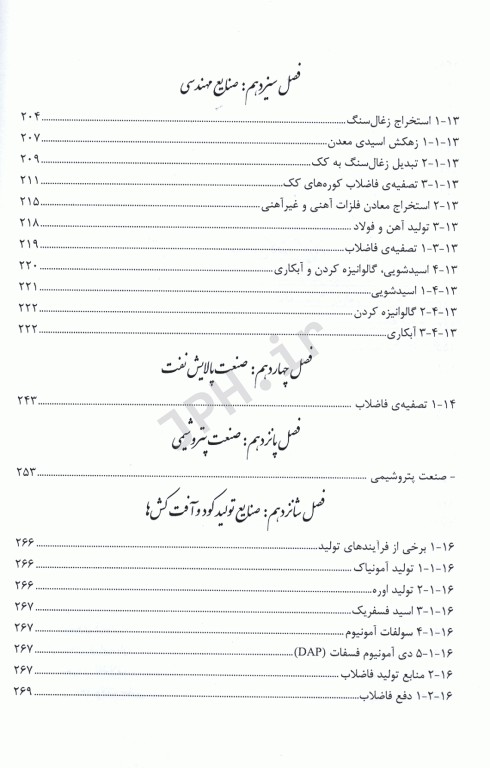 فصل سیزدهم: صنایع مهندسی
۱۳-۱ استخراج زغال‌سنگ ۲۰۴
۱۳-۱-۱ زهکش اسیدی معدن ۲۰۷
۱۳-۱-۲ تبدیل زغال‌سنگ به کک ۲۰۹
۱۳-۱-۳ تصفیه‌ی فاضلاب کوره‌های کک ۲۱۱
۱۳-۲ استخراج معادن فلزات آهنی و غیرآهنی ۲۱۵
۱۳-۳ تولید آهن و فولاد ۲۱۸
۱۳-۳-۱ تصفیه‌ی فاضلاب ۲۱۹
۱۳-۴ اسیدشویی، گالوانیزه کردن و آبکاری ۲۲۰
۱۳-۴-۱ اسیدشویی ۲۲۱
۱۳-۴-۲ گالوانیزه کردن ۲۲۲
۱۳-۴-۳ آبکاری ۲۲۲
فصل چهاردهم: صنعت پالایش نفت
۱۴-۱ تصفیه‌ی فاضلاب ۲۴۳
فصل پانزدهم: صنعت پتروشیمی
- صنعت پتروشیمی ۲۵۳
فصل شانزدهم: صنایع تولید کود و آفت کش‌ها
۱۶-۱ برخی از فرآیندهای تولید ۲۶۶
۱۶-۱-۱ تولید آمونیاک ۲۶۶
۱۶-۱-۲ تولید اوره ۲۶۶
۱۶-۱-۳ اسید فسفریک ۲۶۷
۱۶-۱-۴ سولفات آمونیوم ۲۶۷
۱۶-۱-۵ دی آمونیوم فسفات (DAP) ۲۶۷
۱۶-۲ منابع تولید فاضلاب ۲۶۷
۱۶-۲-۱ دفع فاضلاب ۲۶۹
JPH.ir